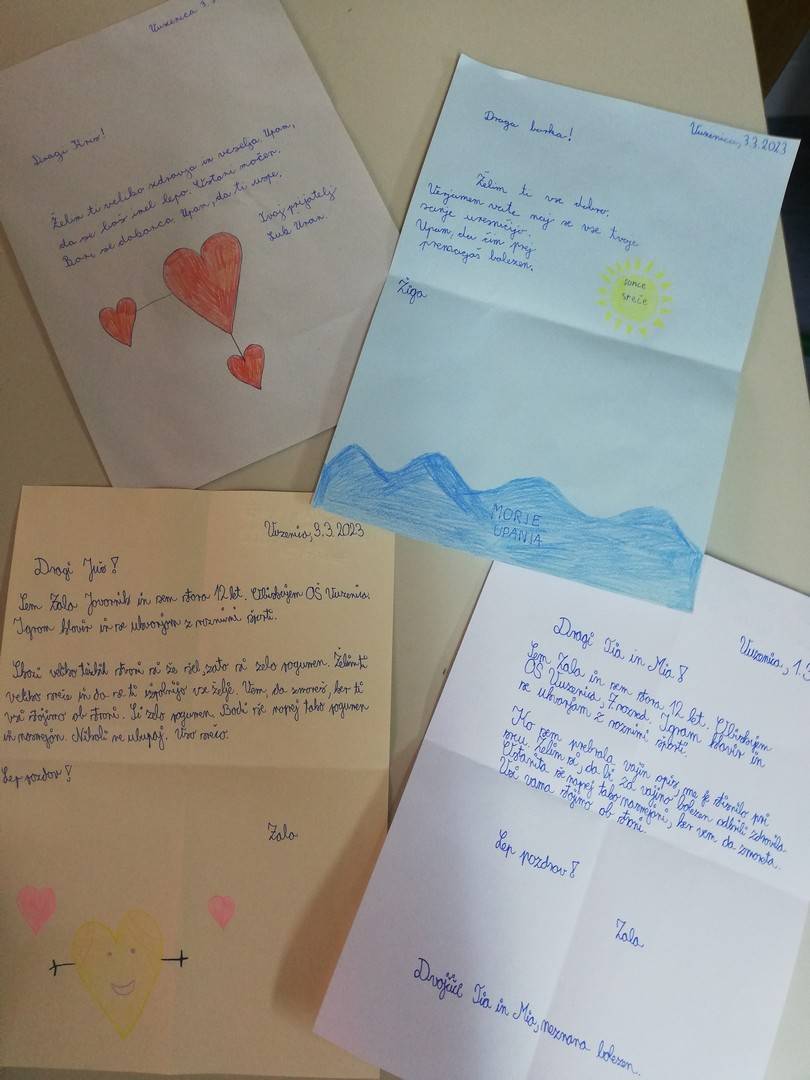 Vuzenica 3.
Dragi
Želim ti veliko zdravja in veselja Upam,
da se boš imel lepo. Ostani močen.
Bori se dokonca Upam, da ti uspe.
Tvoj prijatelj
Luk
Vuzenica, 3.3.2023
Draga borka!
Želim ti vse dobro.
Verjamem vate naj se vse tvoje
sanje uresničijo.
Upam, da čim prej
premagaš bolezen.
Žiga
sonce
sreče
MORJE
UPANJA
Vuzenica, 3.3.2023
Dragi Juš!
Sem Zala Javornik in sem stara 12 let. Obiskujem OŠ Vuzenica.
Igram klavir in se ukvarjam z raznimi športi.
Skozi veliko težkih stvari si že šel, zato si zelo pogumen. Želim ti
veliko sreče in da se ti izpolnijo vse želje. Vem, da zmoreš, ker ti
vsi stojimo ob strani. Si zelo pogumen. Bodi še naprej tako pogumen
in nasmejan. Nikoli ne obupaj. Vso srečo.
Lep pozdrav!
Zala
Vuzenica, 1.3
Dragi Tia in Mia!
Sem Zala in sem stara 12 let. Obiskujem
OŠ Vuzenica, 7. razred. Igram klavir in
se ukvarjam z raznimi športi.
Ko sem prebrala vajin opis, me je stisnilo pri
srcu. Želim si, da bi za vajino bolezen odkrili zdravilo.
Ostanita še naprej tako nasmejani, ker vem da zmoreta.
Vsi vama stojimo ob strani.
Lep pozdrav!
Zala
Dvojčici Tia in Mia, neznana bolezen.